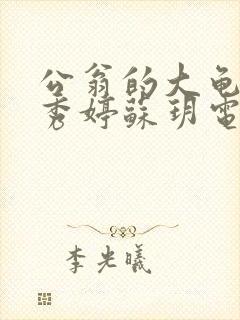 公翁的大龟
秀婷蘇玥電
李光曦